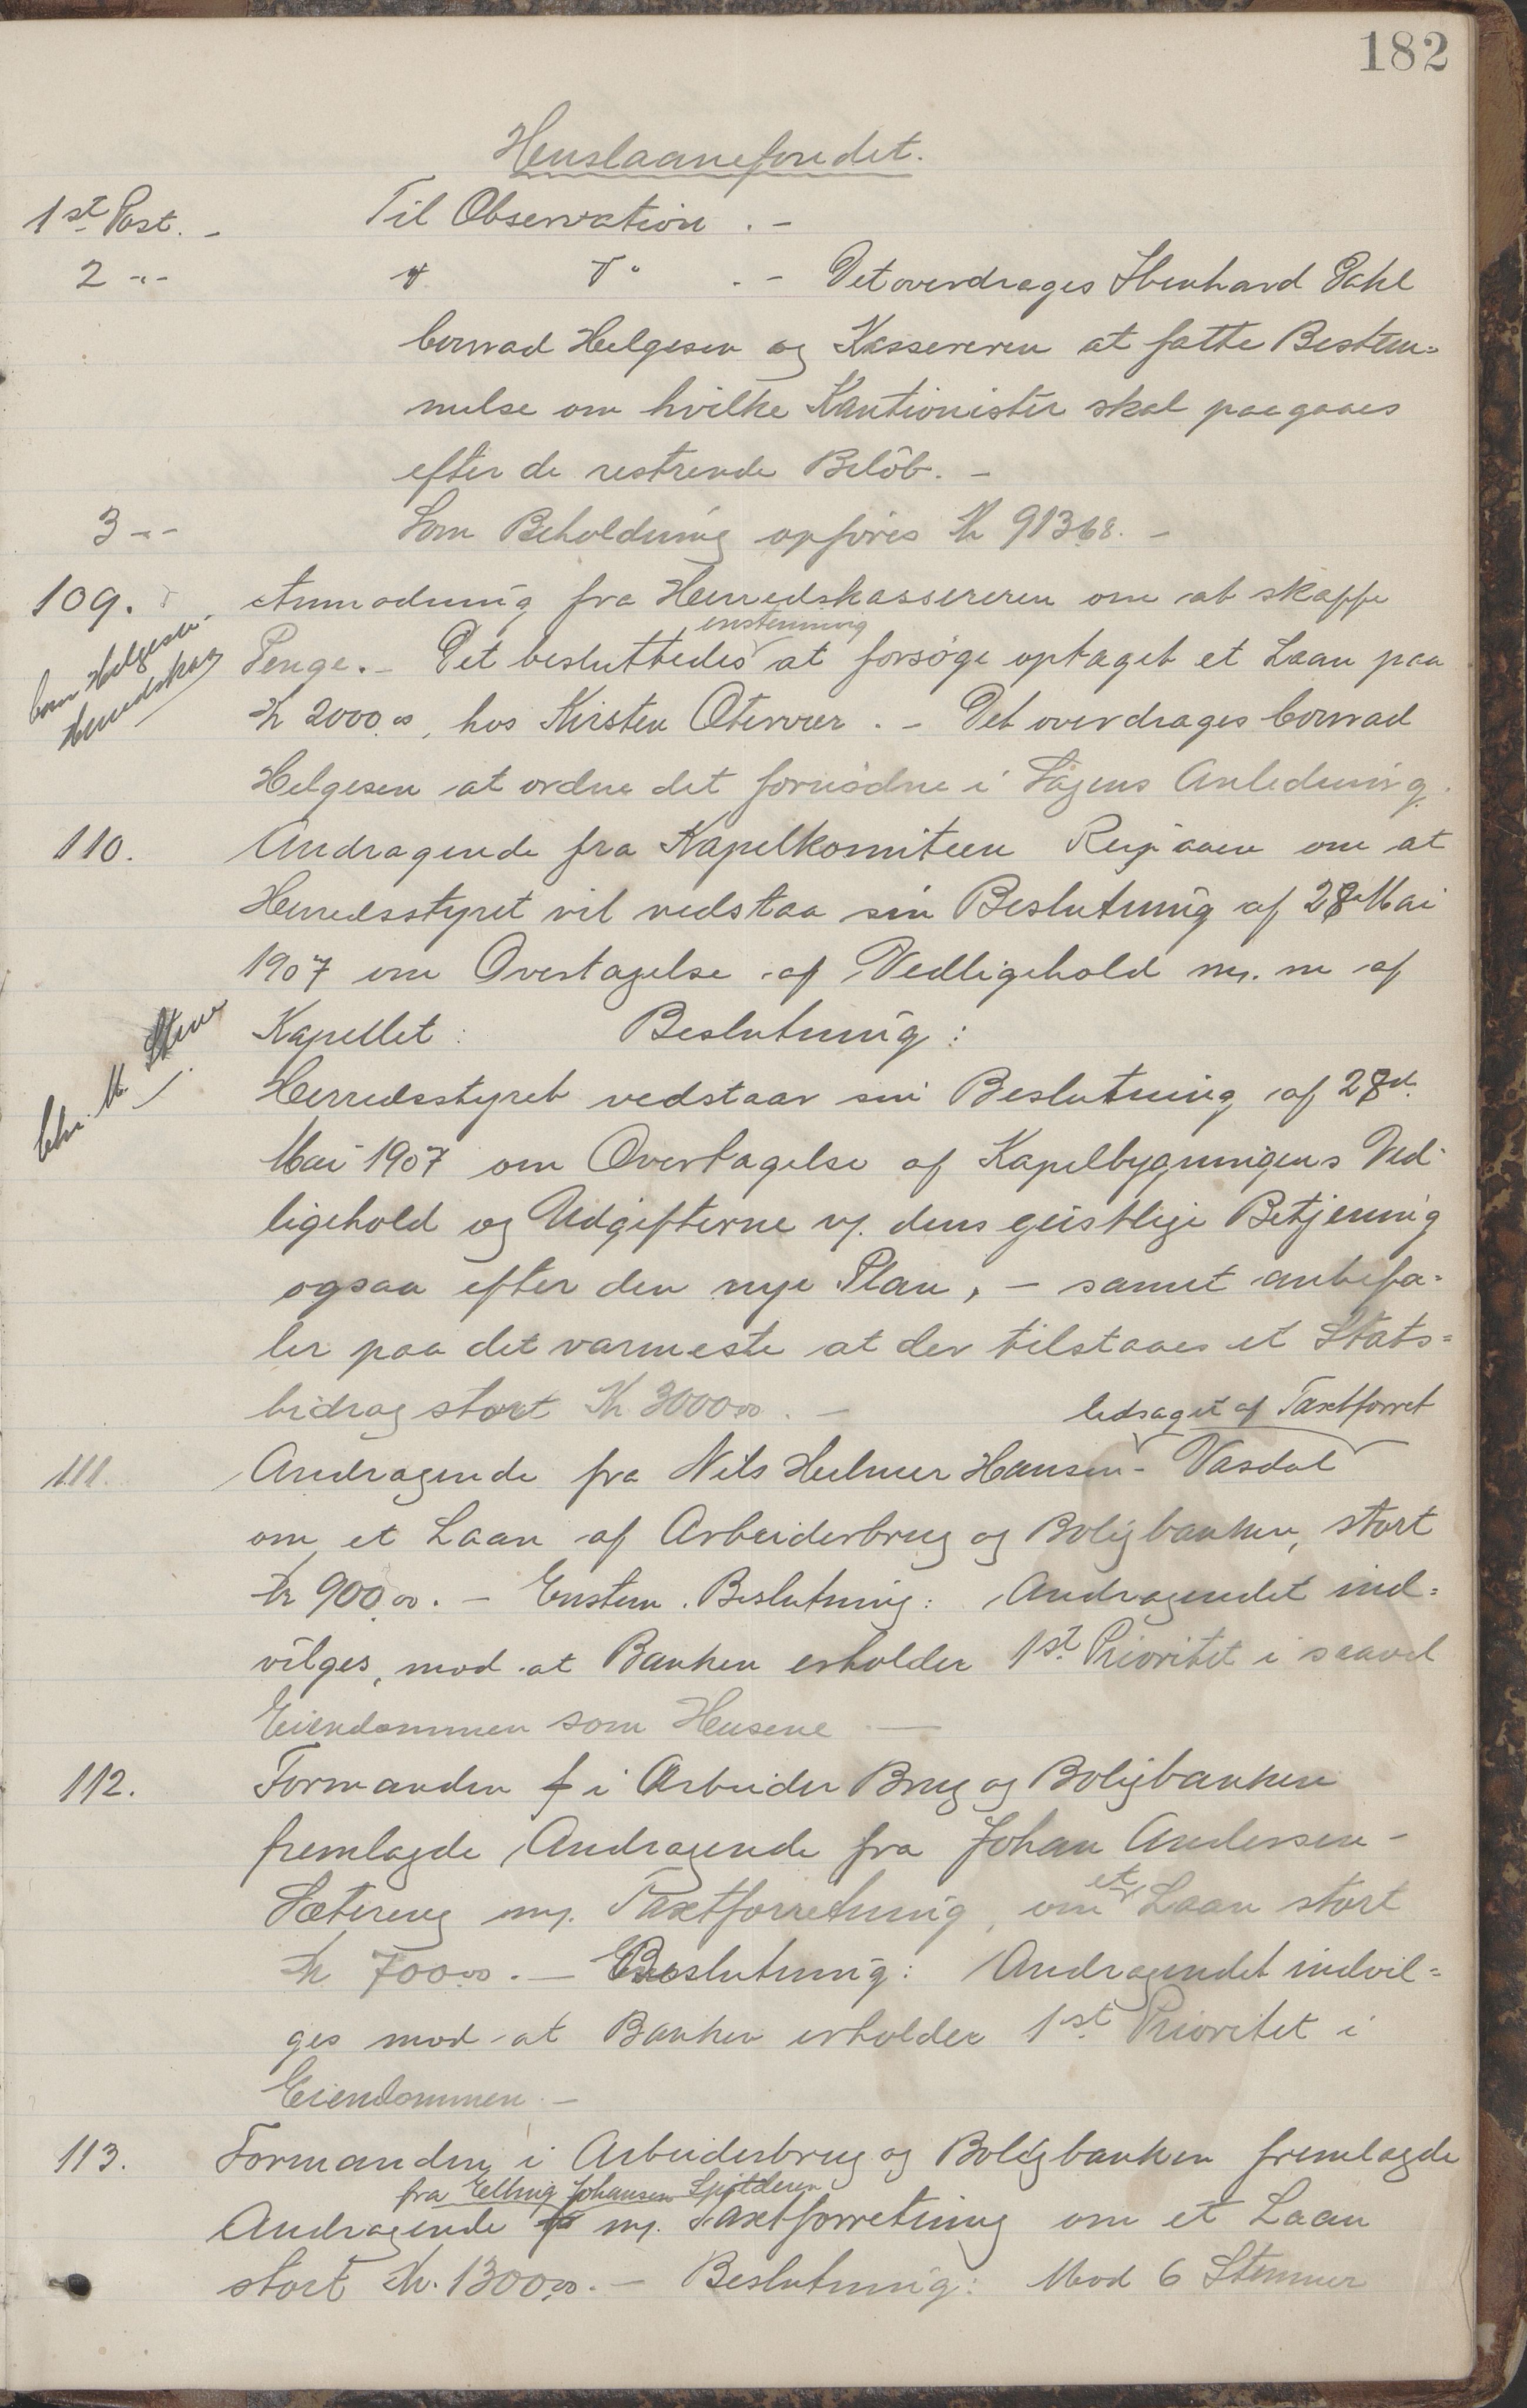 182
Huuslaanefondet.
1st Post. - Til Observation . -
2 -"- " D° . - Det overdrages Ebenhard Dahl
Conrad Helgesen og Kassereren at fatte Bestem=
melse om hvilke Kautionister skal paagaaes
efter de restrende Beløb. -
3 -"- Som Beholdning opføres Kr 91368. -
109. Anmodning fra Herredskassereren om at skaffe
enstemmig
Con Helgesen
Herredskas
Penge. - Det besluttedes at forsøge optaget et Laan paa
Kr 2000.00, hos Kirsten Otervær . - Det overdrages Conrad
Helgesen at ordne det fornødne i Sagens Anledning.
110. Andragende fra Kapelkomiteen Reipaaen om at
Herredsstyret vil vedstaa sin Beslutning af 28 Mai
1907 om Overtagelse af Vedligehold m. m af
Kapellet : Beslutning :
Chr. M. Steen
Herredsstyret vedstaar sin Beslutning af 28d.
Mai 1907 om Overtagelse af Kapelbygningens Ved-
ligehold og Udgifterne v/. dens geistlige Betjening
ogsaa efter den nye Plan, - samt anbefa=
ler paa det varmeste at der tilstaaes et Stats=
bidrag stort Kr 3000.00 . -
ledsaget af Taxtforret
111. Andragende fra Nils Helmer Hansen - Vasdal
om et Laan af Arbeiderbrug og Boligbanken, stort
Kr 900.00. - Enstem. Beslutning: Andragendet ind=
vilges, mod at Banken erholder 1st Prioritet i saavel
Eiendommen som Husene -
112. Formanden f i Arbeider Brug og Boligbanken
fremlagde Andragende fra Johan Andersen -
Sætereng m/. Taxtforretning, om et Laan stort
Kr 700.00. - Beslutning: Andragendet indvil=
ges mod at Banken erholder 1st Prioritet i
Eiendommen. -
113. Formanden i Arbeiderbrug og Boligbanken fremlagde
fra Elling Johansen Spilderen
Andragende m/. Taxtforretning om et Laan
stort Kr. 1300.00. - Beslutning: Mod 6 Stemmer